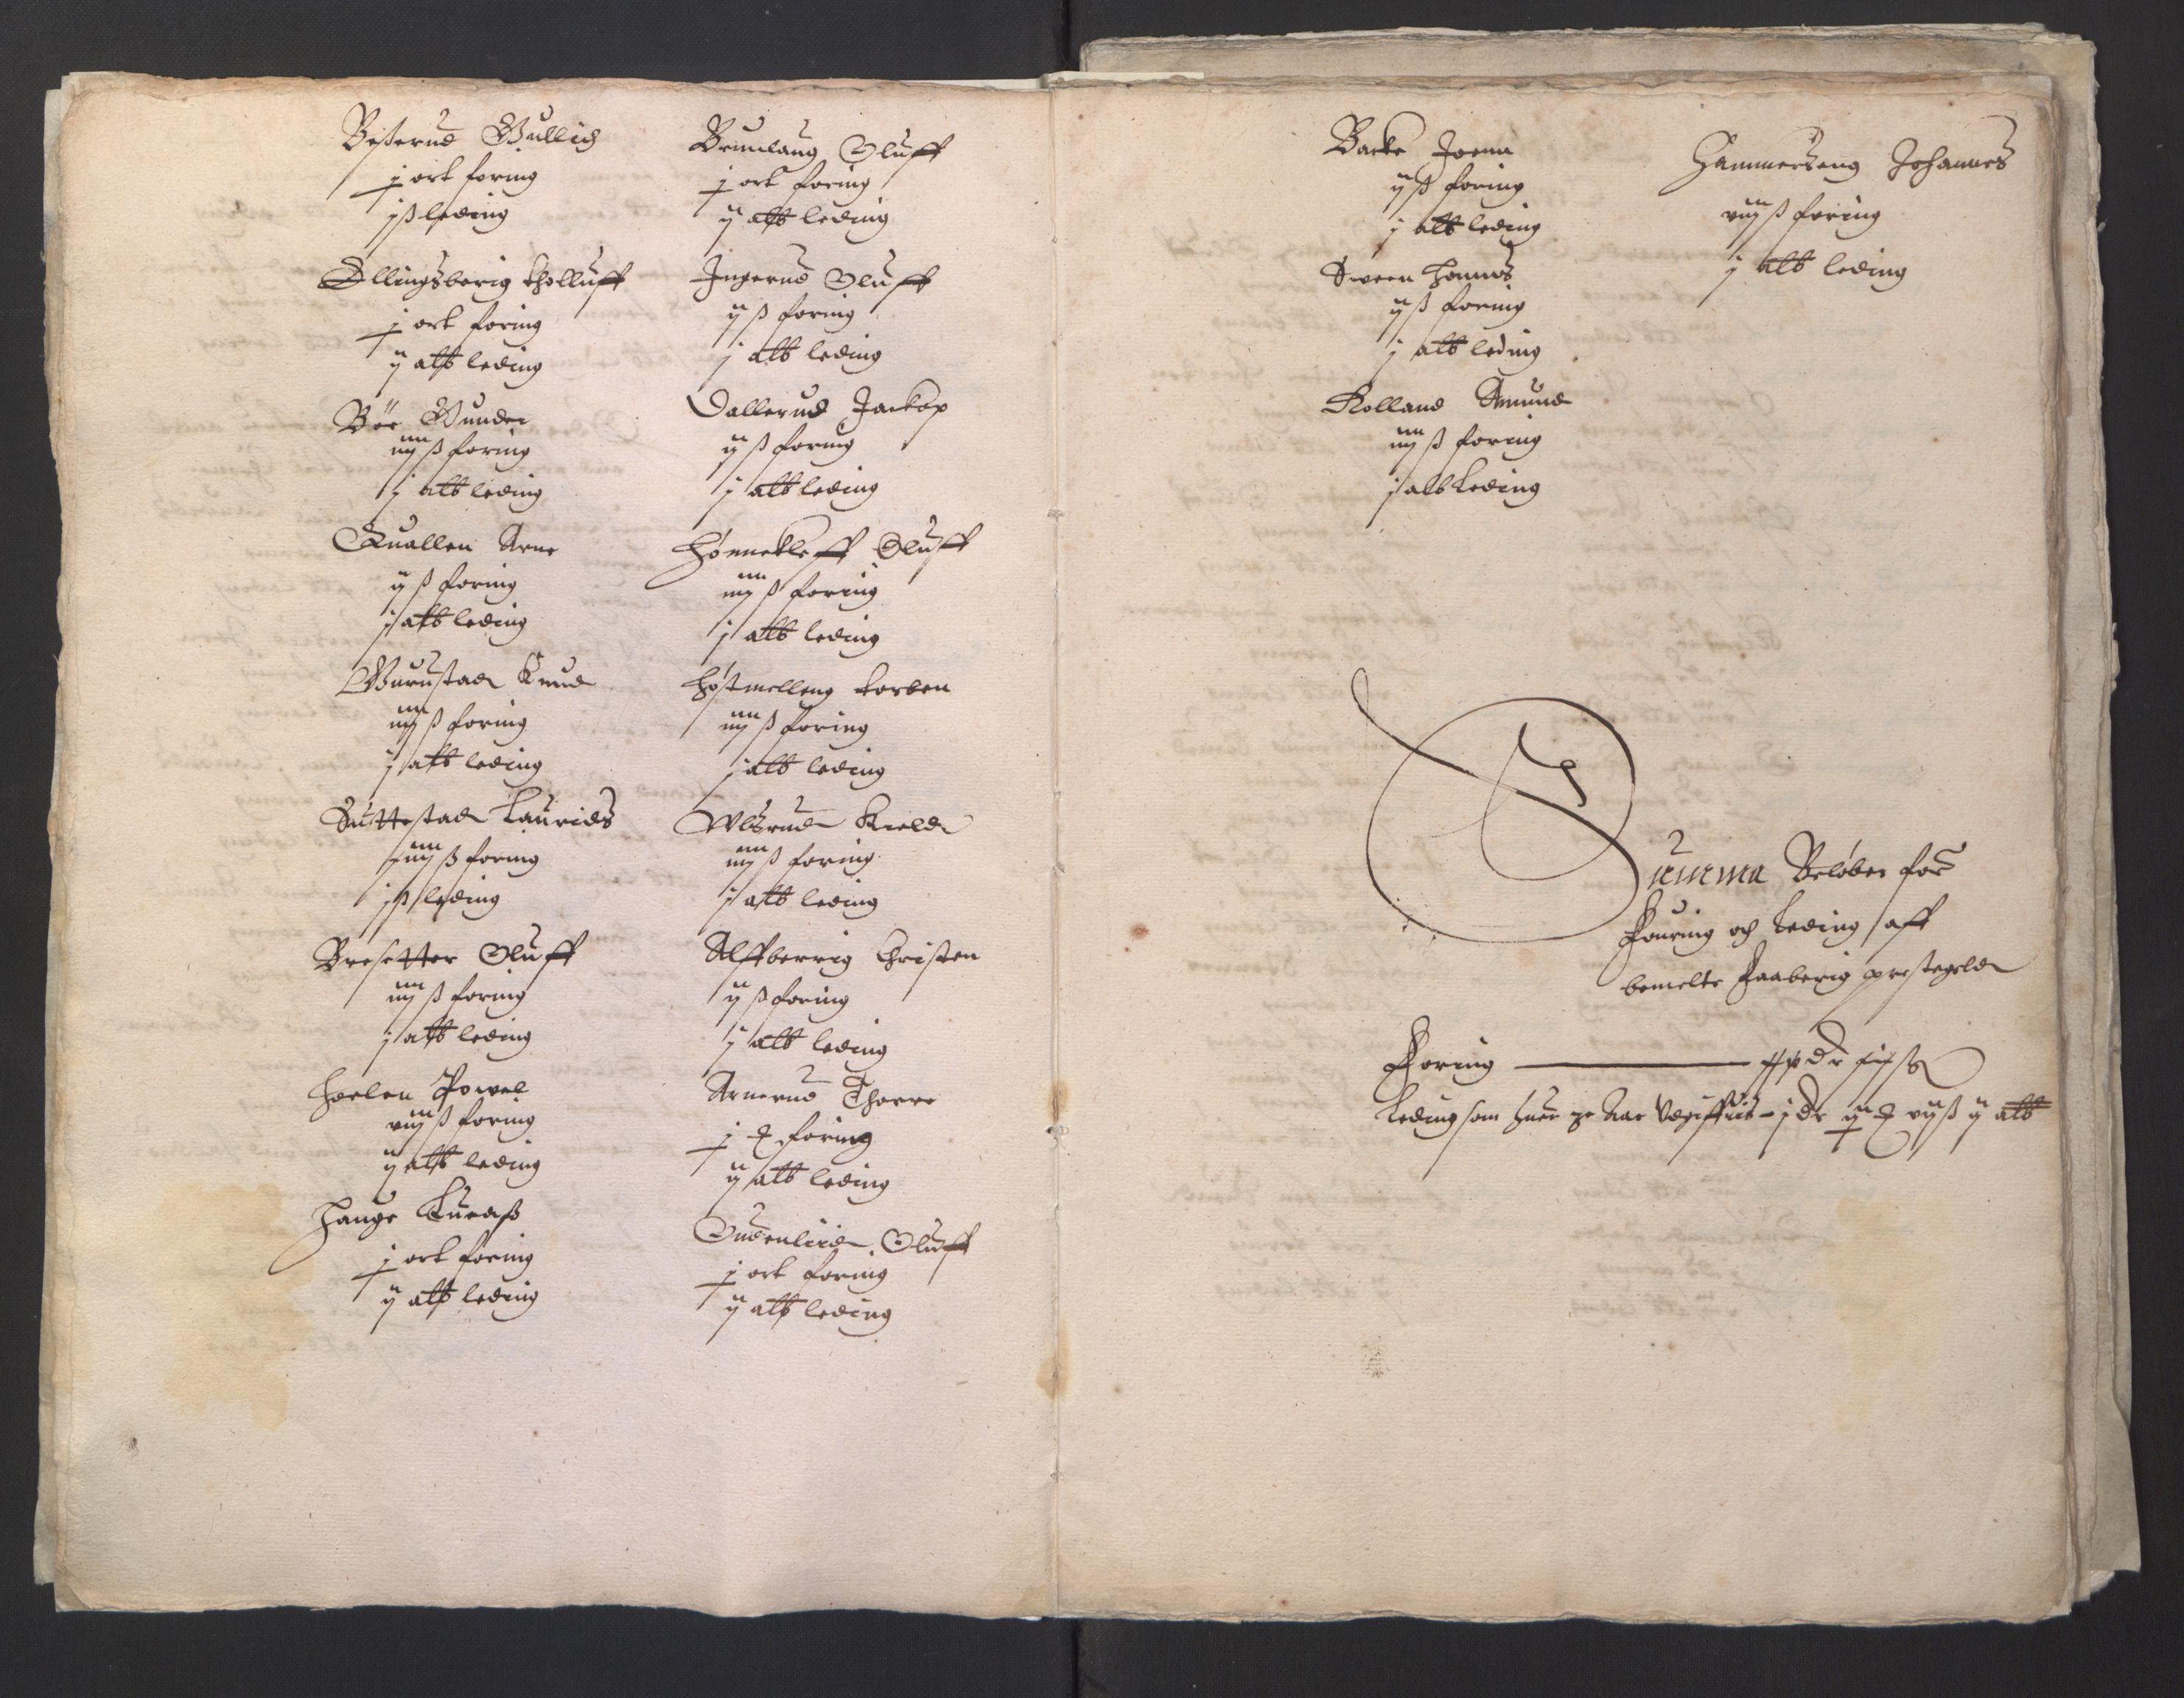 Besserud Gullich
j ort foring
j ß leding
Ellingsberig Tholluff
j ort foring
ij alb leding
Böe Gunder
iiij ß foring
j alb leding
Quallen Arne
ij ß foring
j alb leding
Gurustad Knud
iiij ß foring
j alb leding
Suttestad Laurids
iiij ß foring
j ß leding
Bresetter Oluff
iiij ß foring
j alb leding
Hoelen Powel
viij ß foring
ij alb leding
Hauge
j ort foring
ij alb leding
Brunlaug Oluff
j ort foring
ij alb leding
Ingerud Oluff
ij ß foring
j alb leding
Dallerud Jackop
ij ß foring
j alb leding
Hönnekleff Oluff
iiij ß foring
j alb leding
Höstmelleng Torben
iiij ß foring
j alb leding
Ulsrud Kield
iiij ß foring
j alb leding
Alffberrig Christen
ij ß foring
j alb leding
Arnerud Thorre
foring
ij alb leding
Oudenlied Oluff
j ort foring
ij alb leding
Backe Joenn
ij ß foring
j alb leding
Sween Hannes
ij ß foring
j alb leding
Rolland Amund
iiij ß foring
j alb Leding
Hammerseng Johannes
viij ß foring
j alb leding
Summa Beløber for
Fouring och Leding aff
bemelte Faaberig prestegeld
Foring
Leding som huer Aar Udgiffuis – j dr viij ß ij alb